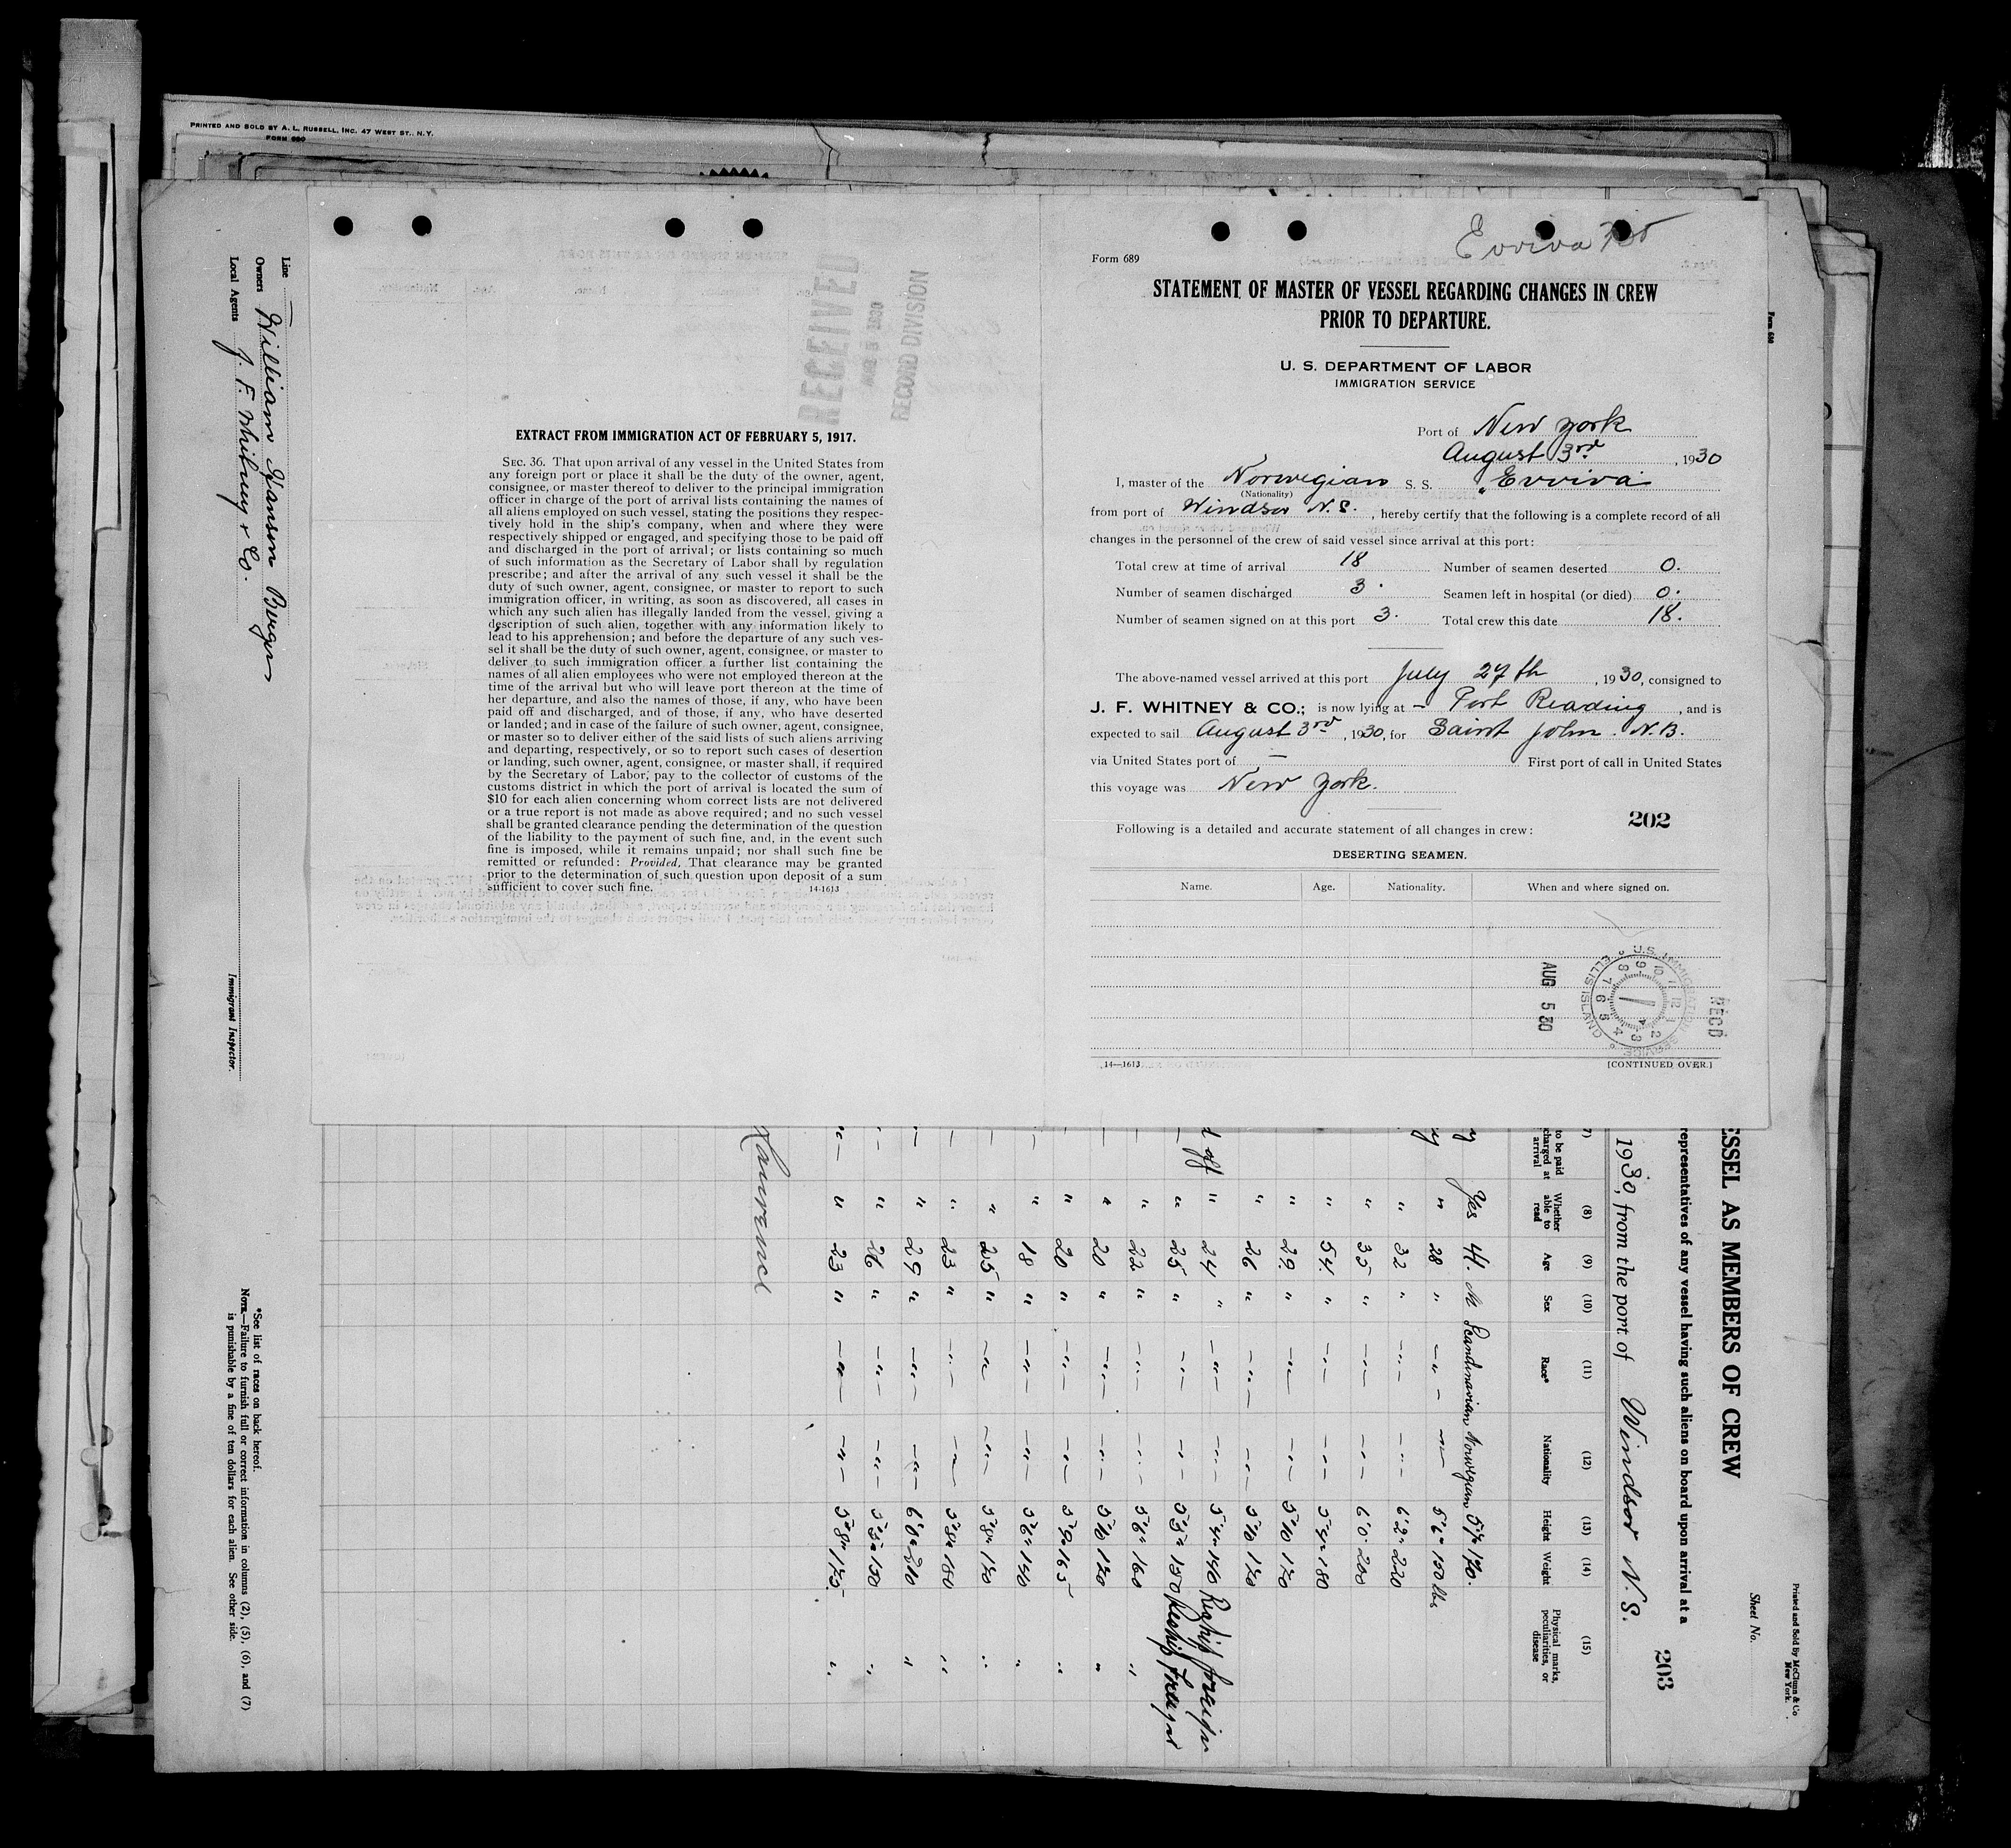 PRINTED AND SOLD BY A. L. RUSSELL, INC. 47 WEST ST., N.Y.
FORM 690
Line
Owners William Hanson Berger
Local Agents J. F. Whitney & Co.
Immigrant Inspector.
RECEIVED
5 1930
RECORD DIVISION
EXTRACT FROM IMMIGRATION ACT OF FEBRUARY 5, 1917.
SEC. 36. That upon arrival of any vessel in the United States from
any foreign port or place it shall be the duty of the owner, agent,
consignee, or master thereof to deliver to the principal immigration
officer in charge of the port of arrival lists containing the names of
all aliens employed on such vessel, stating the positions they respec-
tively hold in the ship's company, when and where they were
respectively shipped or engaged, and specifying those to be paid off
and discharged in the port of arrival; or lists containing so much
of such information as the Secretary of Labor shall by regulation
prescribe; and after the arrival of any such vessel it shall be the
duty of such owner, agent, consignee, or master to report to such
immigration officer, in writing, as soon as discovered, all cases in
which any such alien has illegally landed from the vessel, giving a
description of such alien, together with any information likely to
lead to his apprehension; and before the departure of any such ves-
sel it shall be the duty of such owner, agent, consignee, or master to
deliver to such immigration officer a further list containing the
names of all alien employees who were not employed thereon at the
time of the arrival but who will leave port thereon at the time of
her departure, and also the names of those, if any, who have been
paid off and discharged, and of those, if any, who have deserted
or landed; and in case of the failure of such owner, agent, consignee,
or master so to deliver either of the said lists of such aliens arriving
and departing, respectively, or so to report such cases of desertion
or landing, such owner, agent, consignee, or master shall, if required
by the Secretary of Labor, pay to the collector of customs of the
customs district in which the port of arrival is located the sum of
$10 for each alien concerning whom correct lists are not delivered
or a true report is not made as above required; and no such vessel
shall be granted clearance pending the determination of the question
of the liability to the payment of such fine, and, in the event such
fine is imposed, while it remains unpaid; nor shall such fine be
remitted or refunded: Provided, That clearance may be granted
prior to the determination of such question upon deposit of a sum
sufficient to cover such fine. 14-1613
Evviva
Form 689
STATEMENT OF MASTER OF VESSEL REGARDING CHANGES IN CREW
PRIOR TO DEPARTURE.
U. S. DEPARTMENT OF LABOR
IMMIGRATION SERVICE
Port of New York
August 3rd, 1930
I, master of the Norwegian S. S. "Evviva
(Nationality)
from port of Windsor N.S., hereby certify that the following is a complete record of all
changes in the personnel of the crew of said vessel since arrival at this port:
Total crew at time of arrival 18 Number of seamen deserted 0.
Number of seamen discharged 3. Seamen left in hospital (or died) 0.
Number of seamen signed on at this port 3. Total crew this date 18.
The above-named vessel arrived at this port July 27th, 1930, consigned to
J. F. WHITNEY & CO.; is now lying at – Port Reading, and is
expected to sail August 3rd, 1930, for Saint John. N.B.
via United States port of — First port of call in United States
this voyage was New York.
202
Following is a detailed and accurate statement of all changes in crew:
DESERTING SEAMEN.
Name. Age. Nationality. When and where signed on.
REC'D
U.S. IMMIGRATION SERVICE ELLIS ISLAND
AUG 5 30
14—1613 [CONTINUED OVER.]
Form 680
Printed and Sold by McClunn & Co
New York.
Sheet No.
203
ESSEL AS MEMBERS OF CREW
representatives of any vessel having such aliens on board upon arrival at a
1930, from the port of Windsor N.S.
(8) (9) (10) (11) (12) (13) (14) (15)
to be paid charged at arrival Whether able to read Age Sex Race* Nationality Height Weight Physical marks, peculiarities, or disease
Yes 41. M Scandinavian Norwegian 5'7" 170.
" 28 " —"— —"— 5'6" 150 lbs
" 32 " —"— —"— 6'2" 220
" 35 " —"— —"— 6'0" 200
" 54. " —"— —"— 5'4" 180
" 29. " —"— —"— 5'10 170
" 26 " —"— —"— 5'10 170
d off " 24 " —"— —"— 5'4" 140 Reship foreign
" 25 " —"— —"— 5'5" 150 Reship Foreign
" 22 " —"— —"— 5'6" 160 "
" 20 " —"— —"— 5'10 170 "
" 20 " —"— —"— 5'9" 165 "
" 18 " —"— —"— 5'6" 140 "
" 25 " —"— —"— 5'8" 170 "
" 23 " —"— —"— 5'8" 180 "
" 29 " —"— —"— 6'0" 210 "
" 26 " —"— —"— 5'5" 150 "
" 23 " —"— —"— 5'8" 175. "
Laurence
*See list of races on back hereof.
NOTE.—Failure to furnish full or correct information in columns (2), (5), (6), and (7)
is punishable by a fine of ten dollars for each alien. See other side.